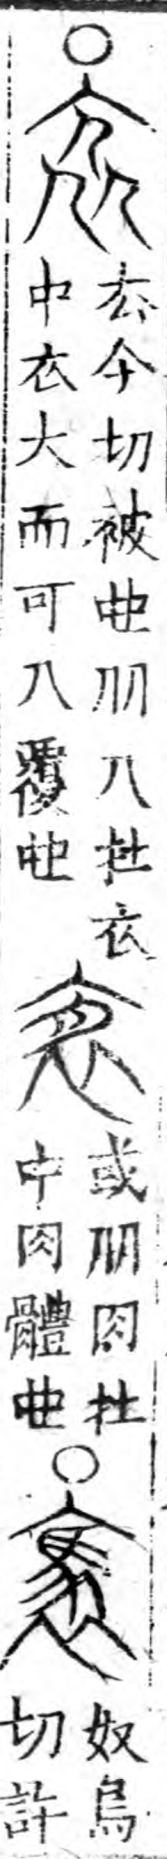 ○
去今切被也从人在衣
中衣大而可人覆也
或从肉在
中肉體也
○
奴鳥
切許